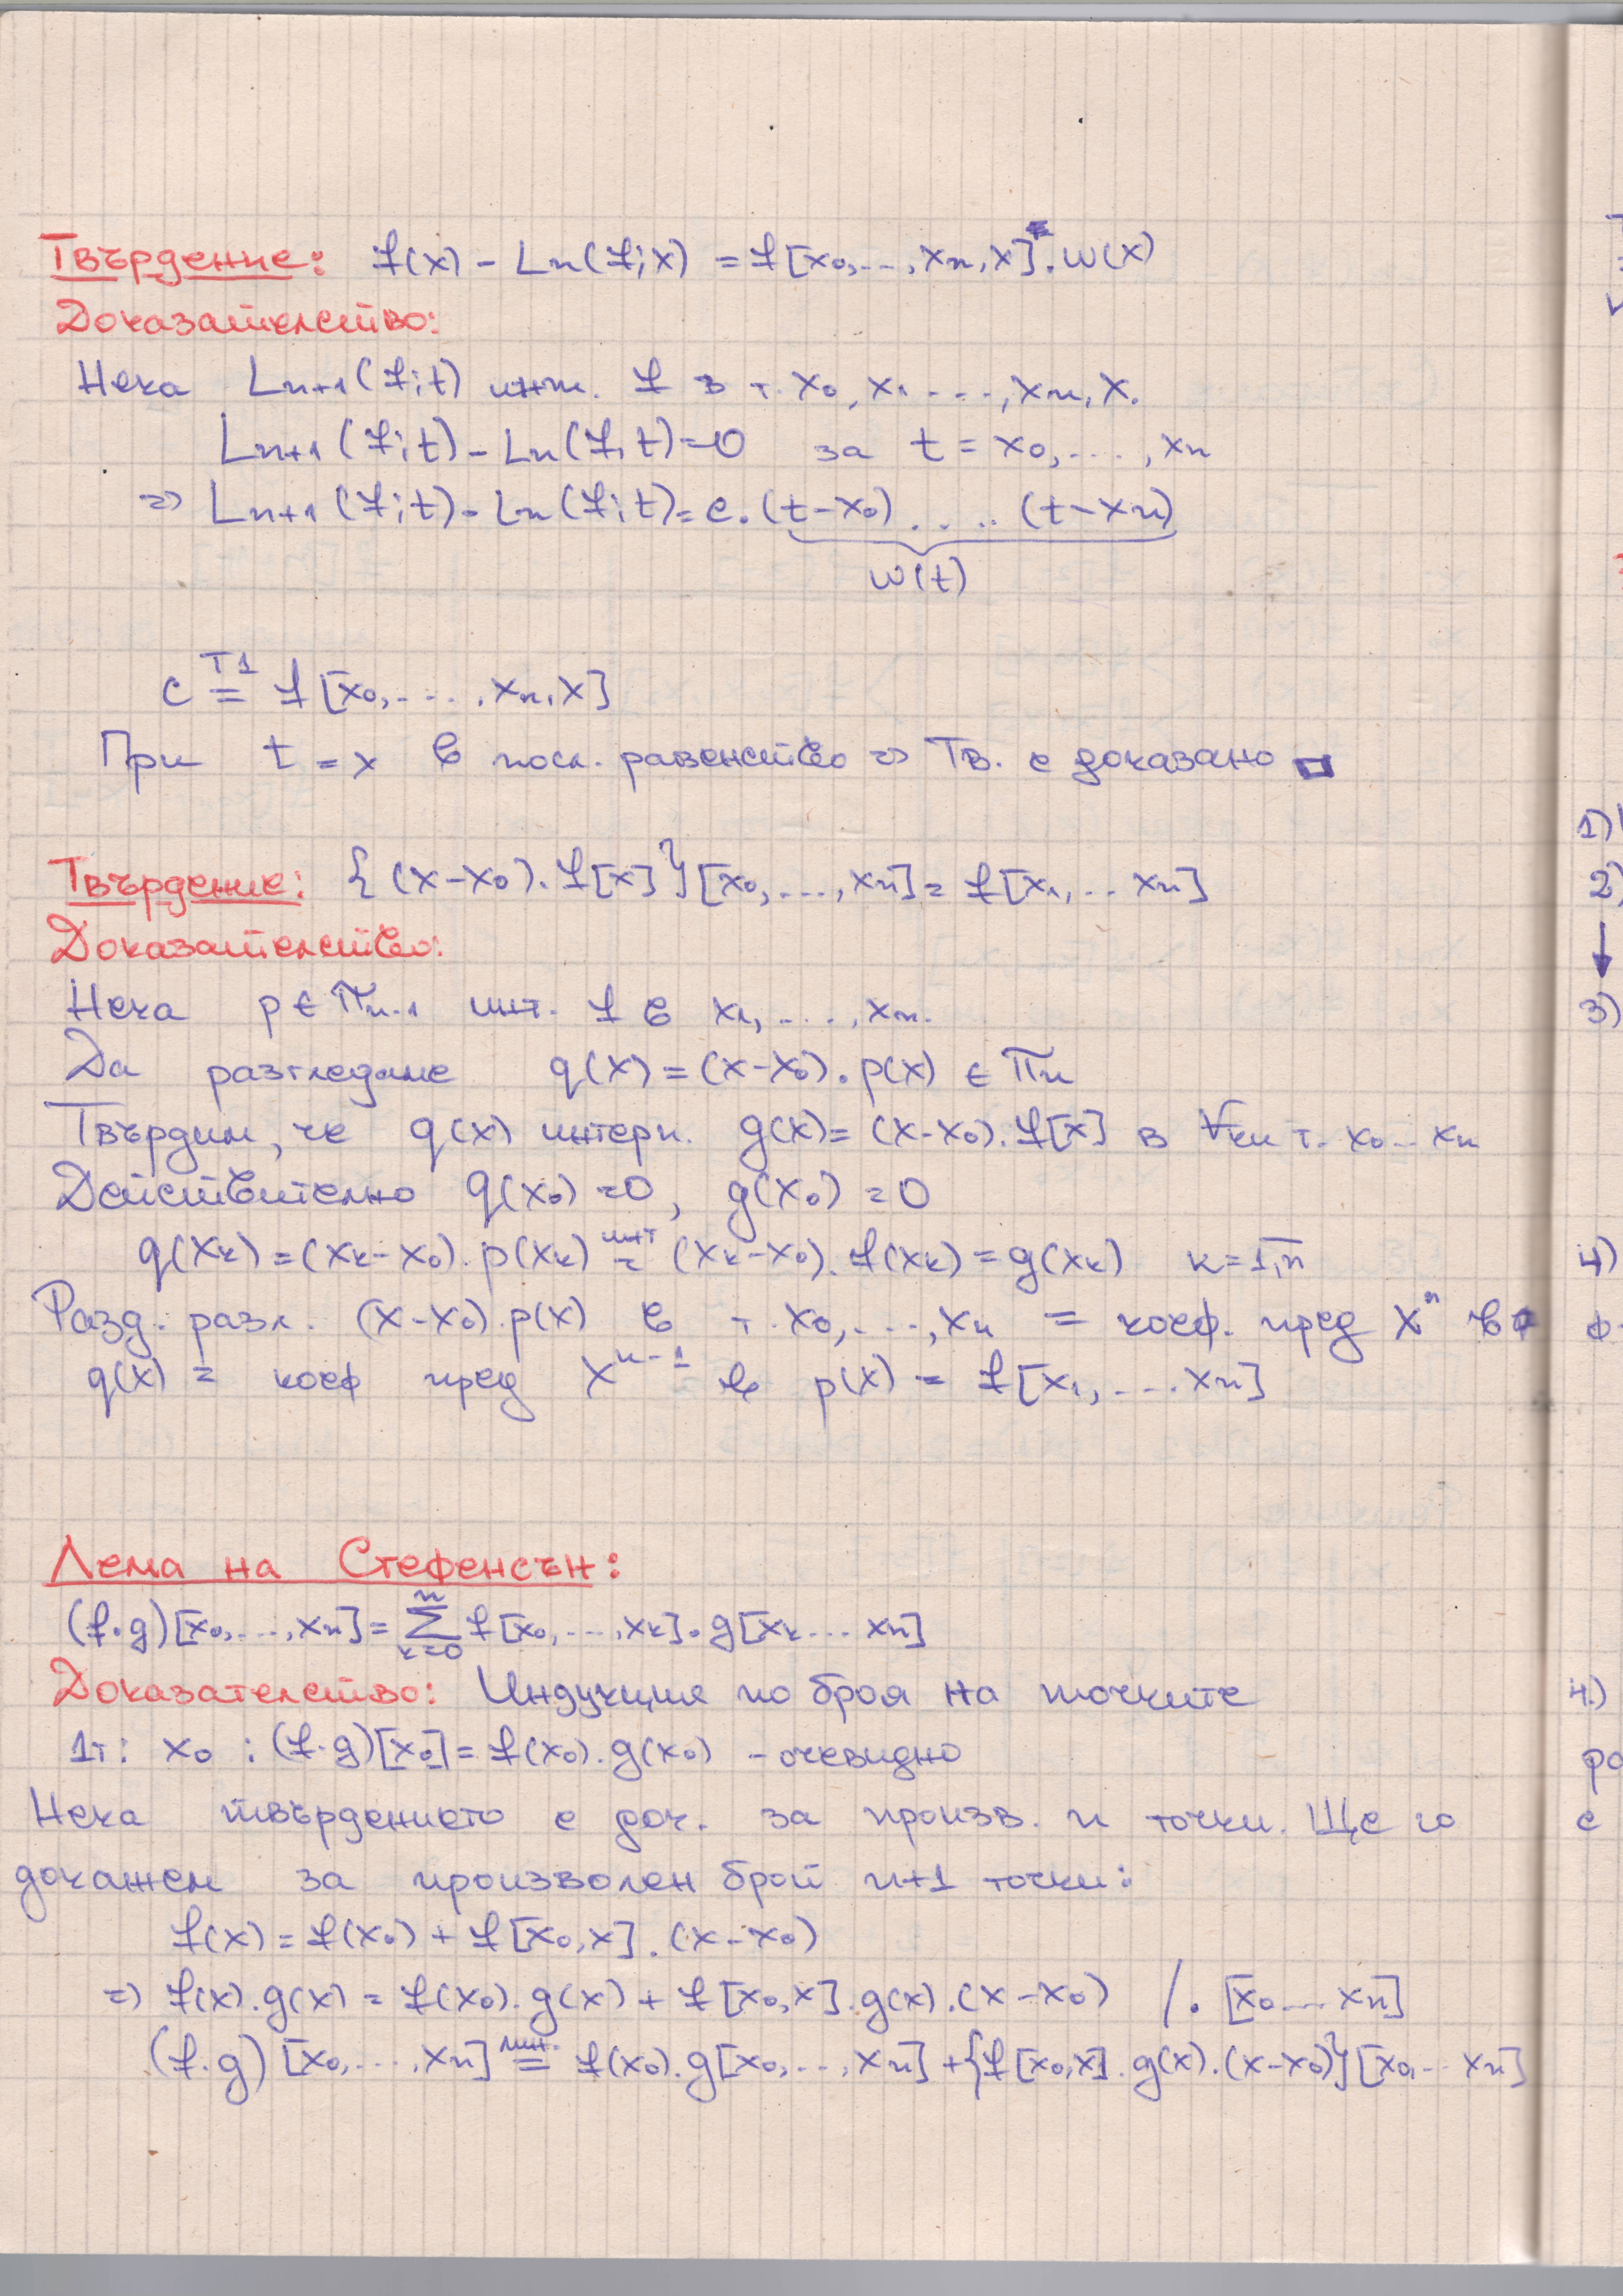 Твърдение: f(x) - Ln(f;x) = f[x0,...,xn,x].ω(x)
Доказателство:
Нека Ln+1(f;t) инт. f в т. x0, x1 ...., xn, x.
Ln+1(f;t) - Ln(f,t)=0 за t = x0,...., xn
=> Ln+1(f;t) - Ln(f;t) = c.(t-x0) ..... (t-xn)
ω(t)
T1
c = f[x0,....,xn,x]
При t = x в посл. равенство => Тв. е доказано □
Твърдение: {(x-x0).f[x]}[x0,...,xn] = f[x1,...xn]
Доказателство:
Нека p ∈ πn-1 инт. f в x1,....,xn.
Да разгледаме q(x) = (x-x0).p(x) ∈ πn
Твърдим, че q(x) интерп. g(x) = (x-x0).f[x] в ∀ки т. x0...xn
Действително q(x0)=0, g(x0)=0
q(xk) = (xk-x0).p(xk) инт = (xk-x0).f(xk) = g(xk) k=1,n
Разд. разл. (x-x0).p(x) в т. x0,....,xn = коеф. пред x^n в
q(x) = коеф пред x^n-1 в p(x) = f[x1,....xn]
Лема на Стефенсън:
(f.g)[x0,...,xn] = n∑k=0 f[x0,....,xk].g[xk...xn]
Доказателство: Индукция по броя на точките
1т: x0 : (f.g)[x0] = f(x0).g(x0) - очевидно
Нека твърдението е док. за произв. n точки. Ще го
докажем за произволен брой n+1 точки:
f(x) = f(x0) + f[x0,x].(x-x0)
=> f(x).g(x) = f(x0).g(x) + f[x0,x].g(x).(x-x0) /. [x0...xn]
(f.g)[x0,....,xn] лин. = f(x0).g[x0,...,xn] + {f[x0,x].g(x).(x-x0)}[x0,..xn]
1)
2)
3)
4)
4.)
е